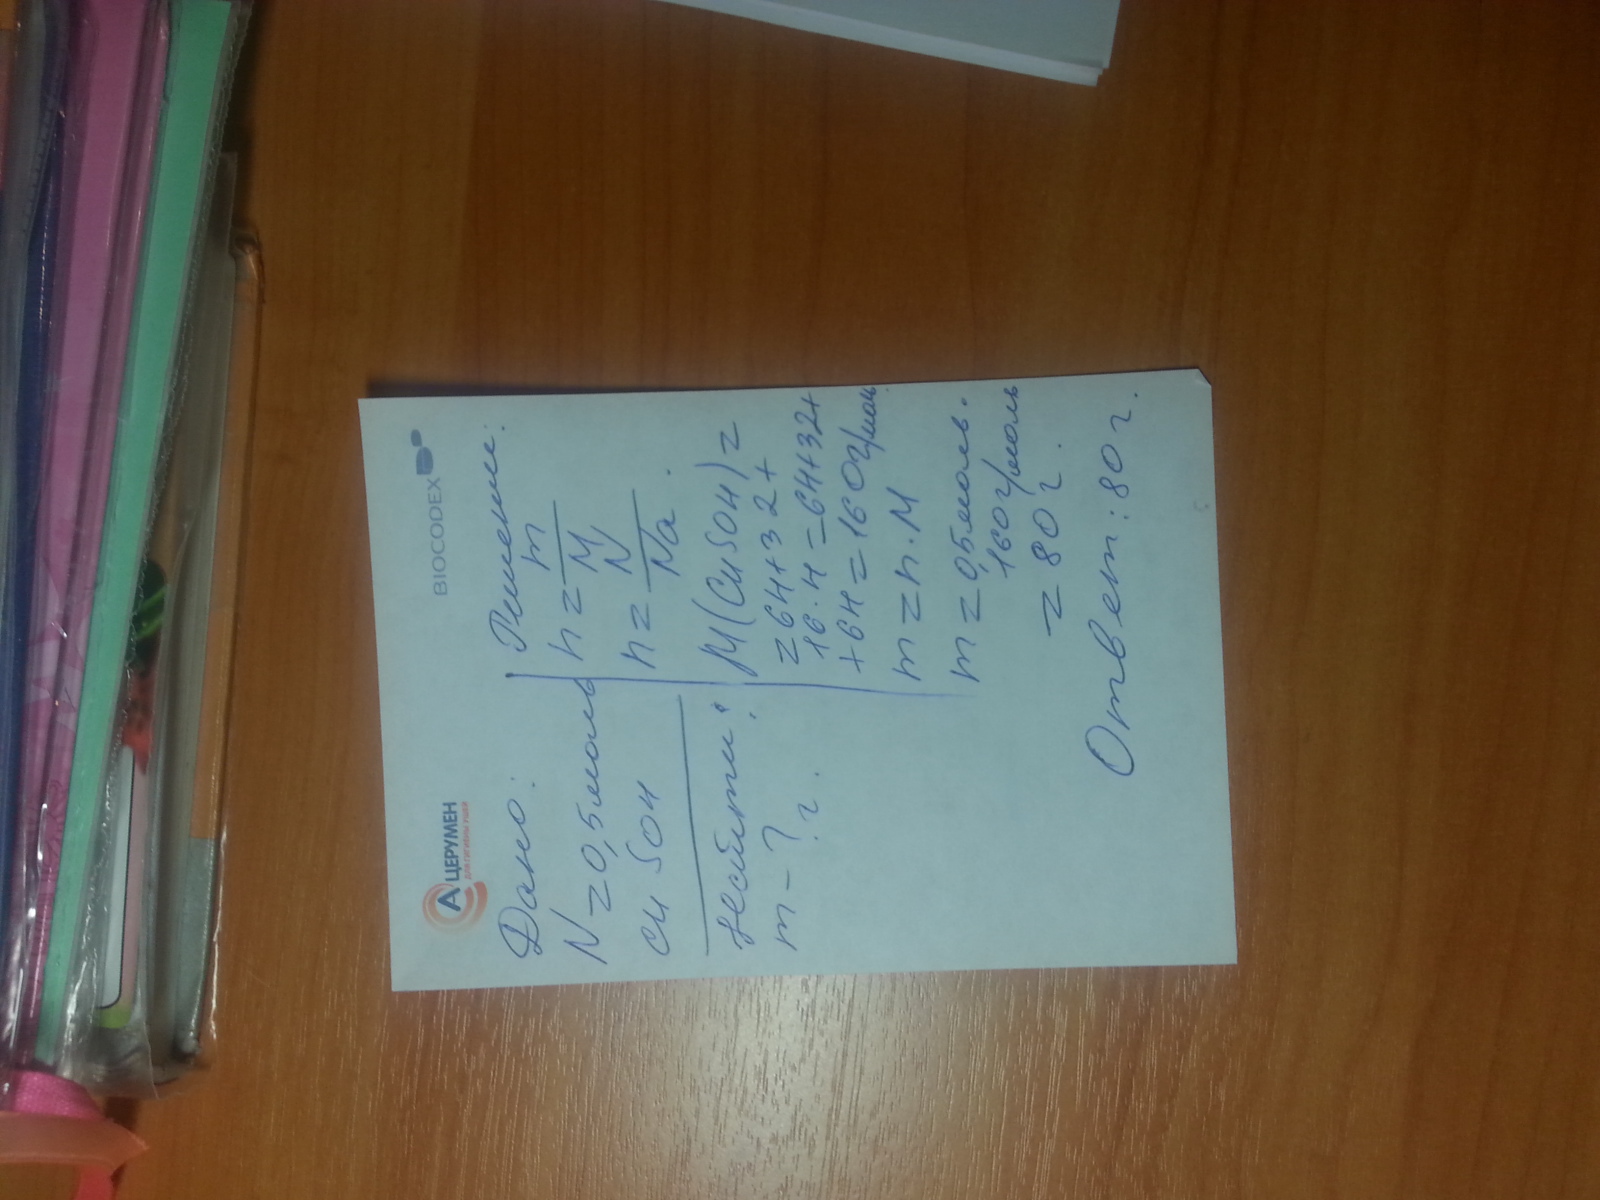 АЦЕРУМЕН
ДЛЯ ГИГИЕНЫ УШЕЙ
BIOCODEX
Дано:
N = 0,5 моль
Cu SO4
Найти:
m - ? г.
Решение:
n = m/M
n = N/Na.
M(CuSO4) =
= 64+32+
16·4 = 64+32+
+64 = 160 г/моль.
m = n·M
m = 0,5 моль·
160 г/моль
= 80 г.
Ответ: 80 г.